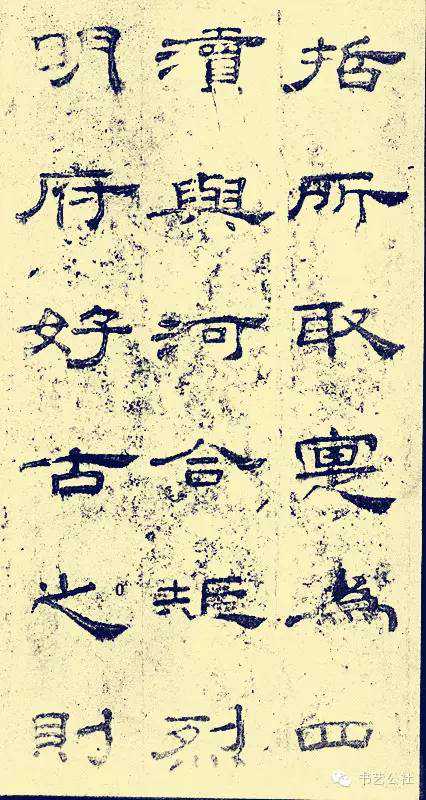 哲所取寔為四
瀆與河合矩烈
明府好古之則
书艺公社